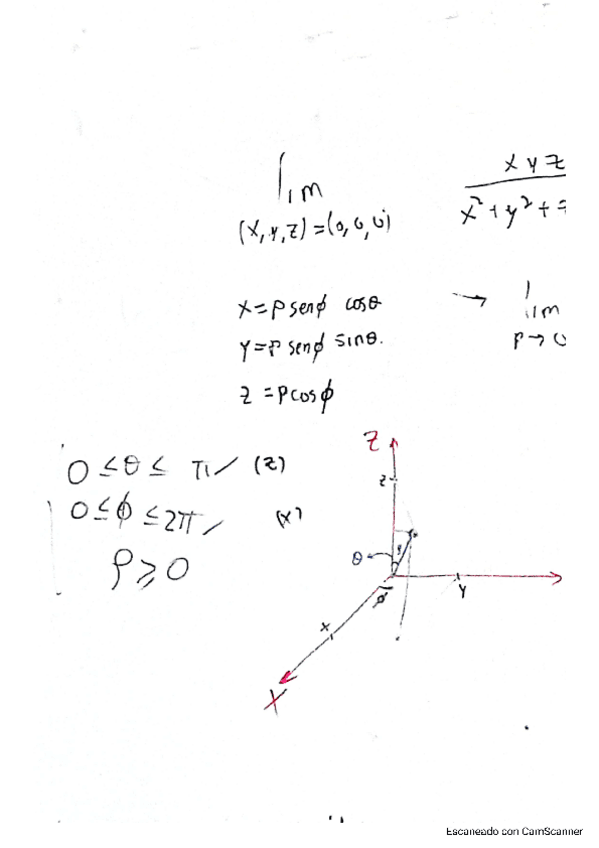 lim x y z
(x,y,z)=(0,0,0) x²+y²+z
x=ρ senφ cosθ → lim
y=ρ senφ sinθ. ρ→0
z =ρcosφ
0≤θ≤ π (z)
0≤φ≤2π (x)
ρ≥0
Z
z
θ ρ
φ y
x
X
Escaneado con CamScanner